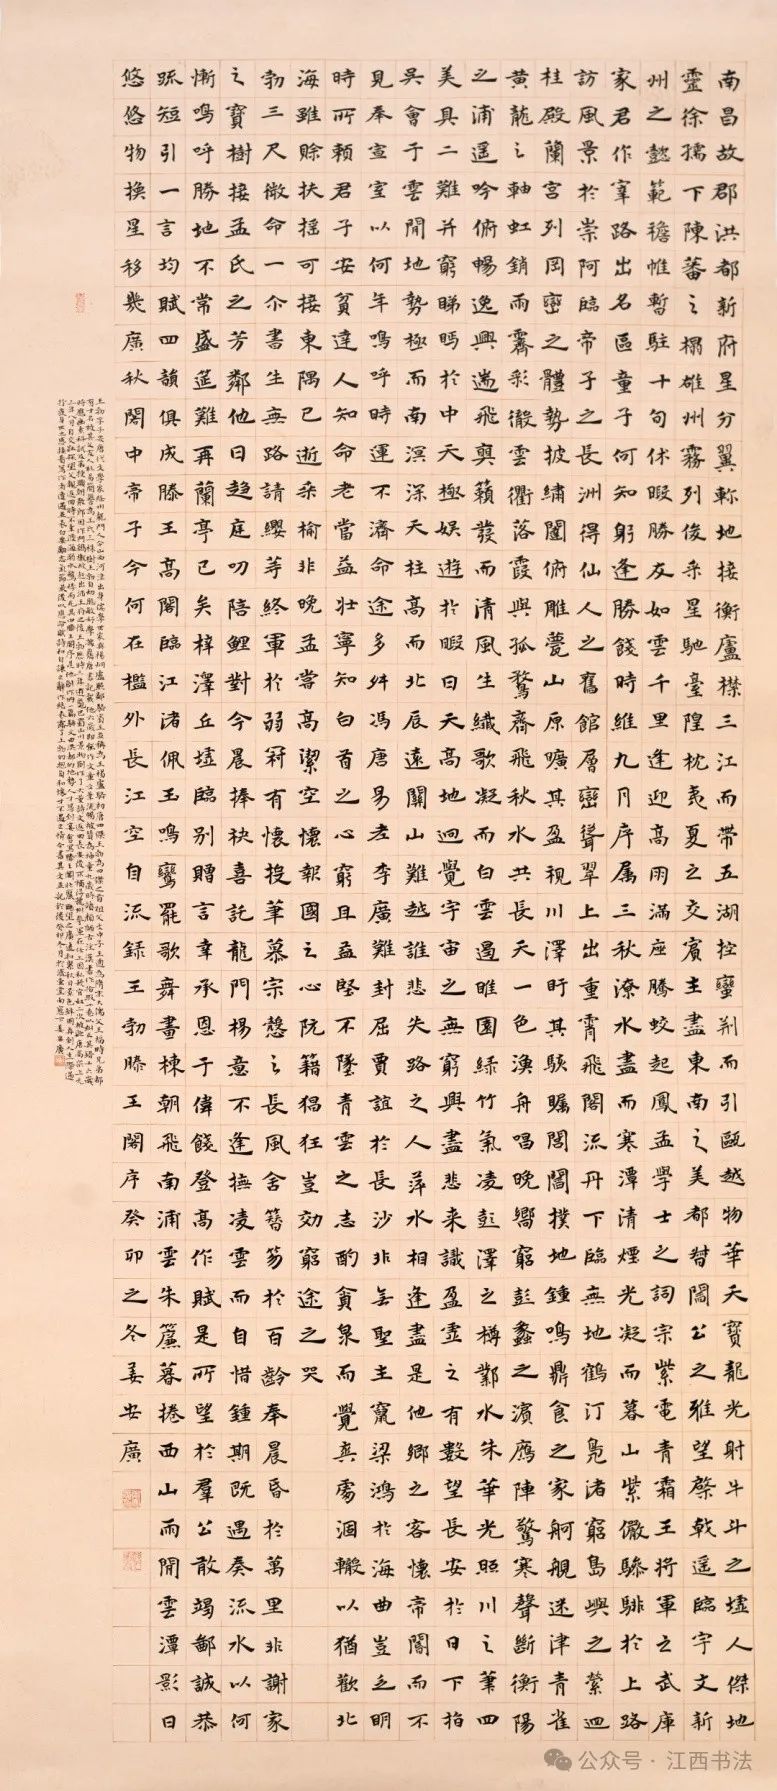 南昌故郡洪都新府星分翼軫地接衡廬襟三江而帶五湖控蠻荆而引甌越物華天寶龍光射牛斗之墟人傑地
靈徐孺下陳蕃之榻雄州霧列俊采星馳臺隍枕夷夏之交賓主盡東南之美都督閻公之雅望棨戟遥臨宇文新
州之懿範襜帷暫駐十旬休暇勝友如雲千里逢迎高朋滿座騰蛟起鳳孟學士之詞宗紫電青霜王將軍之武庫
家君作宰路出名區童子何知躬逢勝餞時維九月序属三秋潦水盡而寒潭清煙光凝而暮山紫儼驂騑於上路
訪風景於崇阿臨帝子之長洲得仙人之舊館層巒聳翠上出重霄飛閣流丹下臨無地鶴汀鳧渚窮島嶼之縈迴
桂殿蘭宮列岡巒之體勢披繡闥俯雕甍山原曠其盈視川澤盱其駭矚閭閻撲地鍾鳴鼎食之家舸艦迷津青雀
黄龍之軸虹銷雨霽彩徹雲衢落霞與孤鶩齊飛秋水共長天一色漁舟唱晚嚮窮彭蠡之濱鴈陣驚寒聲斷衡陽
之浦遥吟俯暢逸興遄飛爽籟發而清風生纖歌凝而白雲遏睢園緑竹氣凌彭澤之樽鄴水朱華光照川之筆四
美具二難并窮睇眄於中天極娱遊於暇日天高地迥覺宇宙之無窮興盡悲来識盈虚之有數望長安於日下指
吳會于雲間地勢極而南溟深天柱高而北辰遠關山難越誰悲失路之人萍水相逢盡是他鄉之客懷帝閽而不
見奉宣室以何年嗚呼時運不濟命途多舛馮唐易老李廣難封屈賈誼於長沙非無聖主竄梁鴻於海曲豈乏明
時所賴君子安貧達人知命老當益壯寧知白首之心窮且益堅不墜青雲之志酌貪泉而覺爽處涸轍以猶歡北
海雖賒扶摇可接東隅已逝桑榆非晚孟嘗高潔空懷報國之心阮籍猖狂豈効窮途之哭
勃三尺微命一介書生無路請纓等終軍於弱冠有懷投筆慕宗慤之長風舍簪笏於百齡奉晨昏於萬里非謝家
之寶樹接孟氏之芳鄰他日趋庭叨陪鯉對今晨捧袂喜託龍門楊意不逢撫凌雲而自惜鍾期既遇奏流水以何
慚嗚呼勝地不常盛筵難再蘭亭已矣梓澤丘墟臨别贈言幸承恩于偉餞登高作賦是所望於羣公敢竭鄙誠恭
䟽短引一言均賦四韻俱成滕王高閣臨江渚佩玉鳴鸞罷歌舞畫棟朝飛南浦雲朱簾暮捲西山雨閒雲潭影日
悠悠物換星移幾度秋閣中帝子今何在檻外長江空自流録王勃滕王閣序癸卯之冬姜安廣
公众号·江西书法